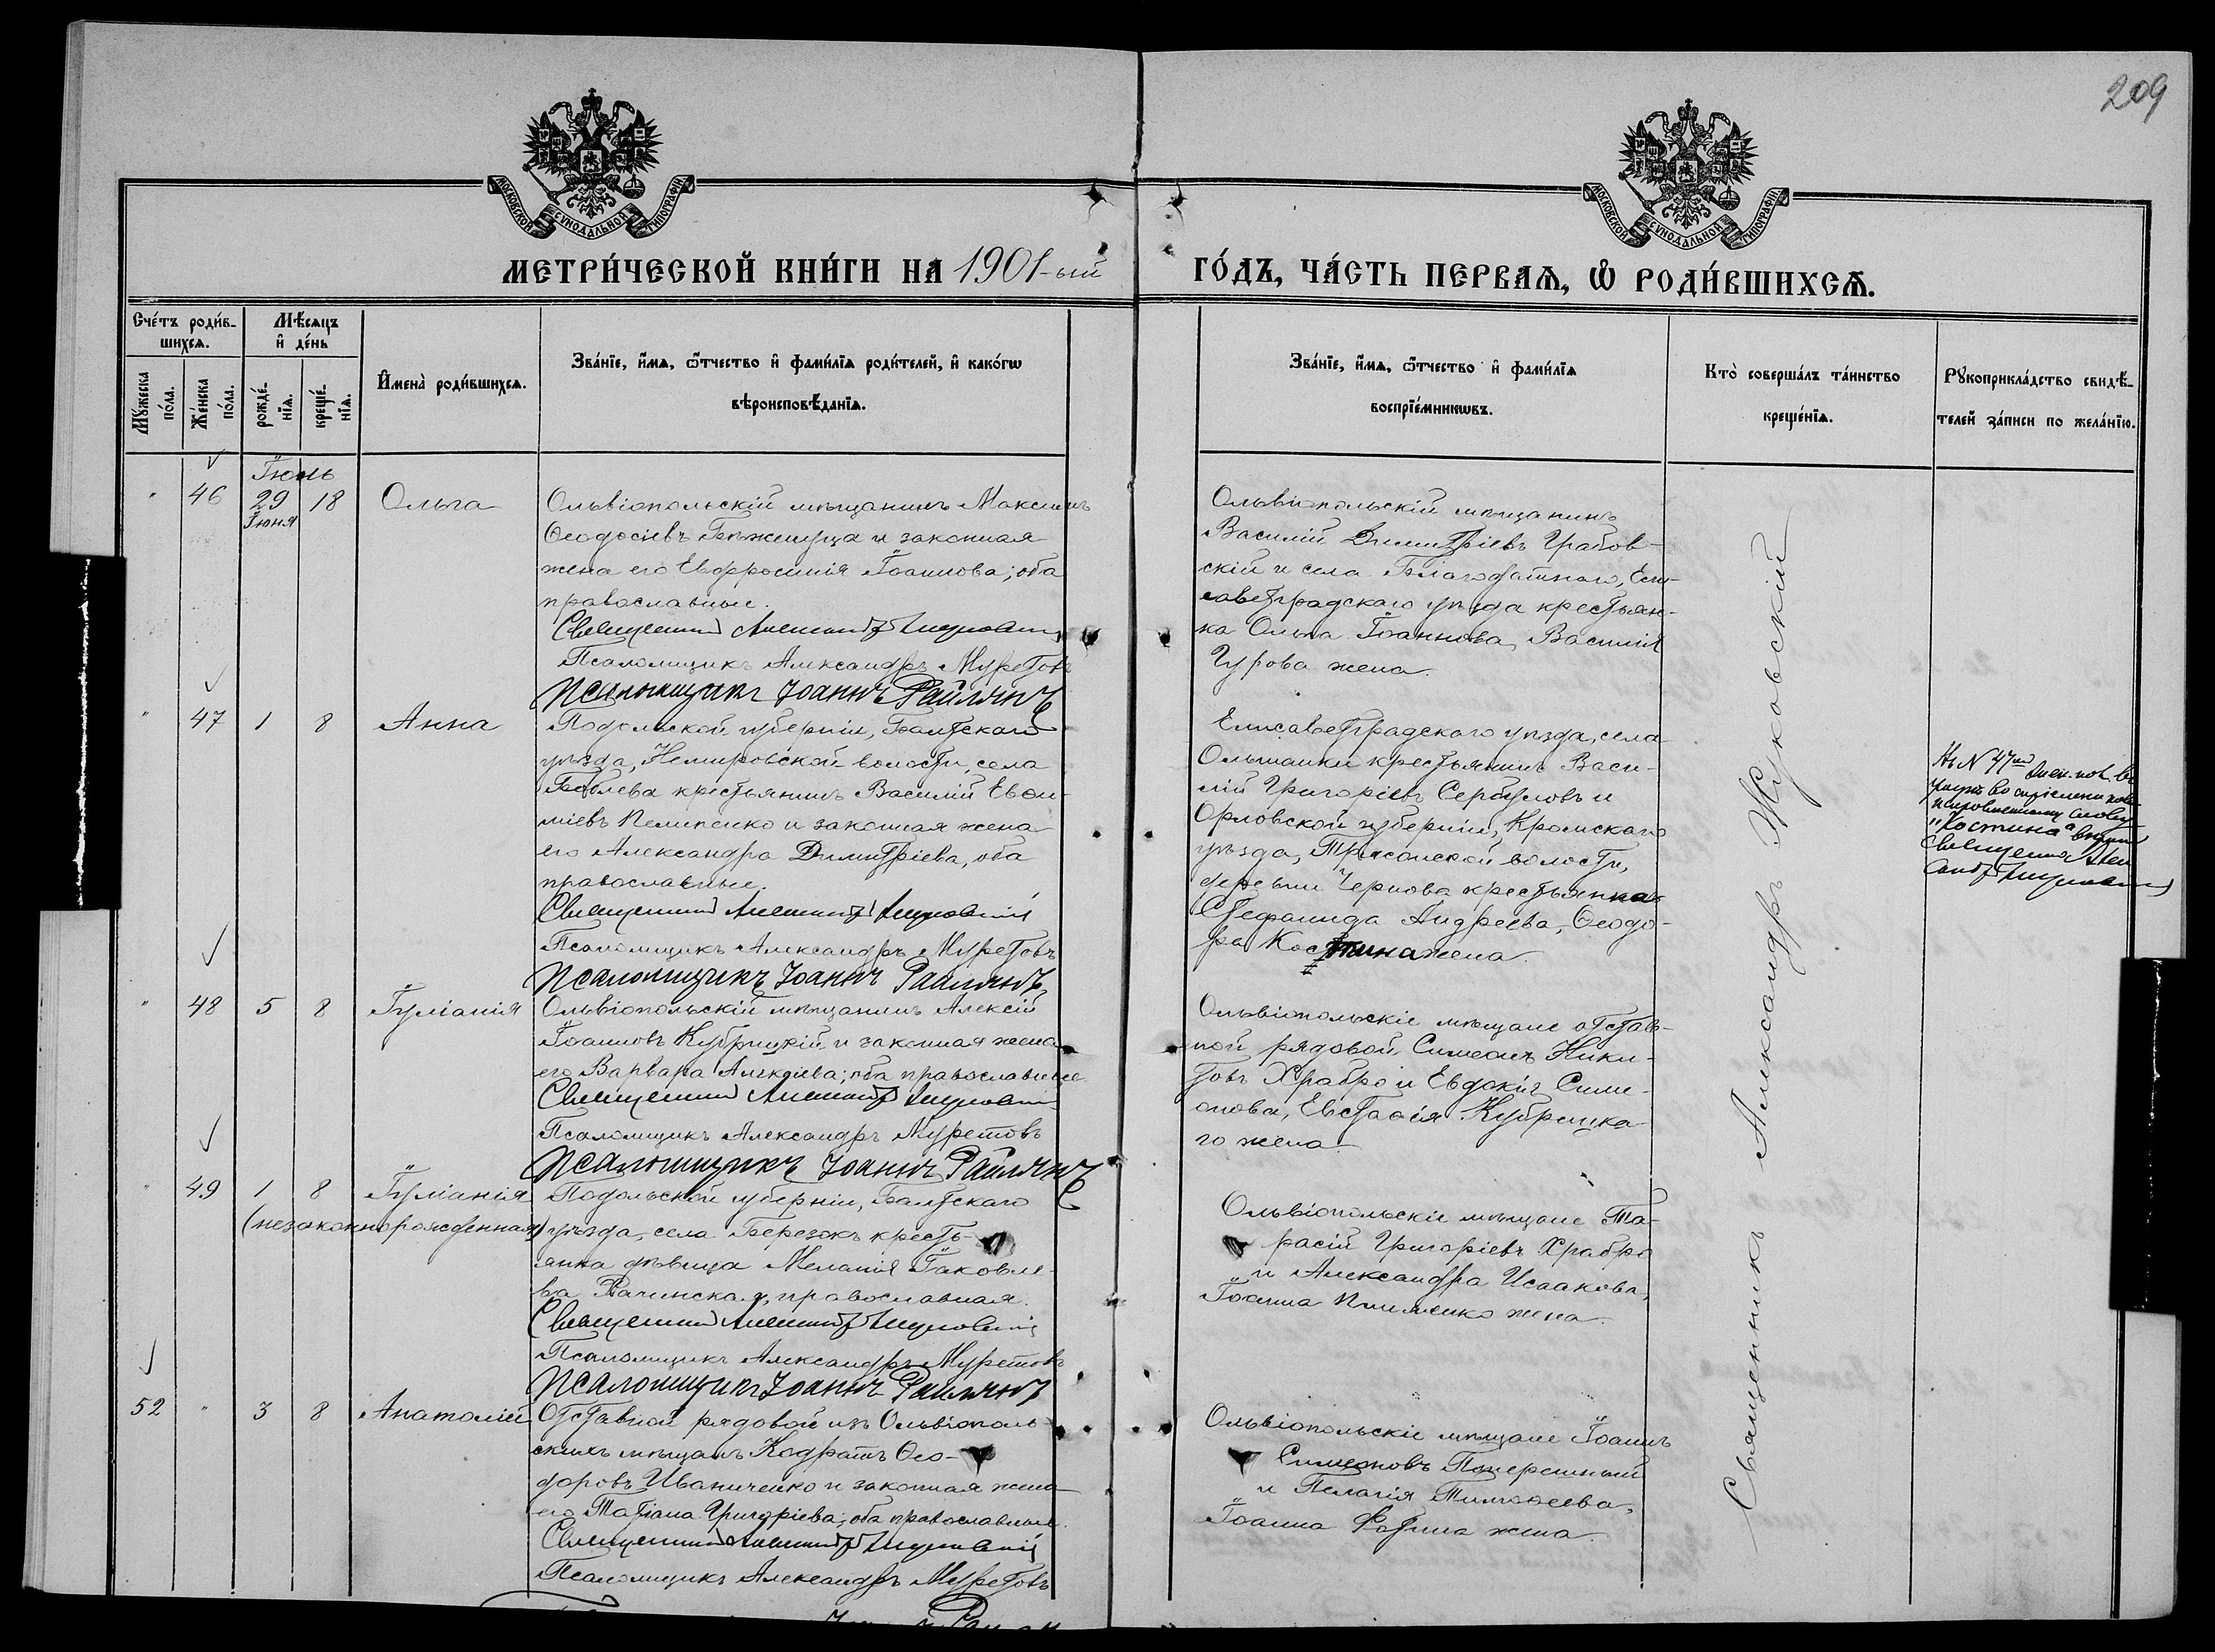 209
МОСКОВСКОЙ СУНОДАЛЬНОЙ ТИПОГРАФІИ
МОСКОВСКОЙ СУНОДАЛЬНОЙ ТИПОГРАФІИ
МЕТРИ́ЧЕСКОЙ КНИ́ГИ НА 1901-ый
ГО́ДЪ, ЧА́СТЬ ПЕРВАѦ, Ѿ РОДИ́ВШИХСѦ.
Сче́тъ роди́в-
шихсѧ.
Мѣ́сѧцъ
и҆ де́нь
Мꙋ́жеска
по́ла.
Же́нска
по́ла.
рожде́-
нїѧ.
креще́-
нїѧ.
И҆мена̀ роди́вшихсѧ.
Зва́нїе, и҆́мѧ, ѻ҆́тчество и҆ фами́лїѧ роди́телей, и҆ како́гѡ
вѣроисповѣ́данїѧ.
Зва́нїе, и҆́мѧ, ѻ҆́тчество и҆ фами́лїѧ
воспрїе́мникѡвъ.
Кто̀ соверша́лъ та́инство
креще́нїѧ.
Рꙋкоприкла́дство свидѣ́-
телей за́писи по жела́нїю.
Іюль
" 46 29 18 Ольга
Іюня
Ольвіопольскій мѣщанинъ Максимъ
Ѳеодосіевъ Бѣжешуца и законная
жена его Евфросинія Іоаннова; оба
православные.
Священник Александр Жуковский
Псаломщикъ Александръ Муретовъ
Псаломщикъ Іоаннъ Райлянъ
Ольвіопольскій мѣщанинъ
Василій Димитріевъ Грабов-
скій и села Благодатнаго, Ели-
саветградскаго уѣзда крестьян-
ка Ольга Іоаннова, Василія
Гурова жена.
" 47 1 8 Анна
Подольской губерніи, Балтскаго
уѣзда, Немировской волости, села
крестьянинъ Василій Евѳи-
міевъ Пелипенко и законная жена
его Александра Димитріева, оба
православные.
Священник Александр Жуковский
Псаломщикъ Александръ Муретовъ
Псаломщикъ Іоаннъ Райлянъ
Елисаветградскаго уѣзда, села
Ольшанки крестьянинъ Васи-
лій Григоріевъ Сербуловъ и
Орловской губерніи, Кромскаго
уѣзда, волости,
деревни Чернова крестьянка
Стефанида Андреева, Ѳеодо-
ра Костина жена.
Въ N 47мъ
"Костина"
Священник Алек
сандр Жуковский
" 48 5 8 Іуліанія
Ольвіопольскій мѣщанинъ Алексій
Іоанновъ Кубрицкій и законная жена
его Варвара Алексіева; оба православные
Священник Александр Жуковский
Псаломщикъ Александръ Муретовъ
Псаломщикъ Іоаннъ Райлянъ
Ольвіопольскіе мѣщане отстав-
ной рядовой Симеонъ Ники-
товъ Храбро и Евдокія Симе-
онова, Евстаѳія Кубрицка-
го жена.
" 49 1 8 Іуліанія
(незаконнорожденная)
Подольской губерніи, Балтскаго
уѣзда, села Березокъ кресть-
янка дѣвица Меланія Іаковле-
ва Рачинская, православная.
Священник Александр Жуковский
Псаломщикъ Александръ Муретовъ
Псаломщикъ Іоаннъ Райлянъ
Ольвіопольскіе мѣщане Та-
расій Григоріевъ Храбро
и Александра Исаакова,
Іоанна жена.
52 " 3 8 Анатолій
Отставной рядовой изъ Ольвіополь-
скихъ мѣщанъ Кодратъ Ѳео-
доровъ Иванченко и законная жена
его Татіана Григоріева; оба православные.
Священник Александр Жуковский
Псаломщикъ Александръ Муретовъ
Ольвіопольскіе мѣщане Іоаннъ
Симеоновъ Поперешный
и Пелагія Тимоѳеева,
Іоанна жена.
Священникъ Александръ Жуковскій